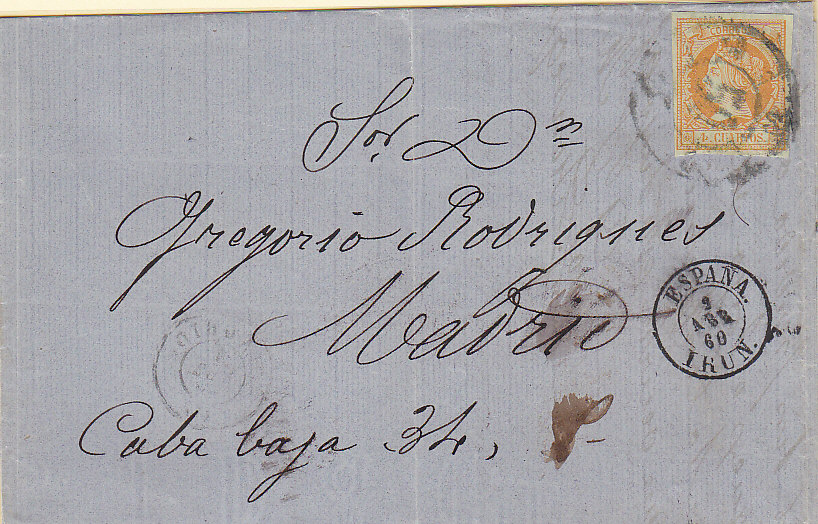 CORREOS
4 CUARTOS.
Sor. Dn
Gregorio Rodrigues
Madrid
ESPAÑA.
2
ABR
60
IRUN.
Caba baja 34,